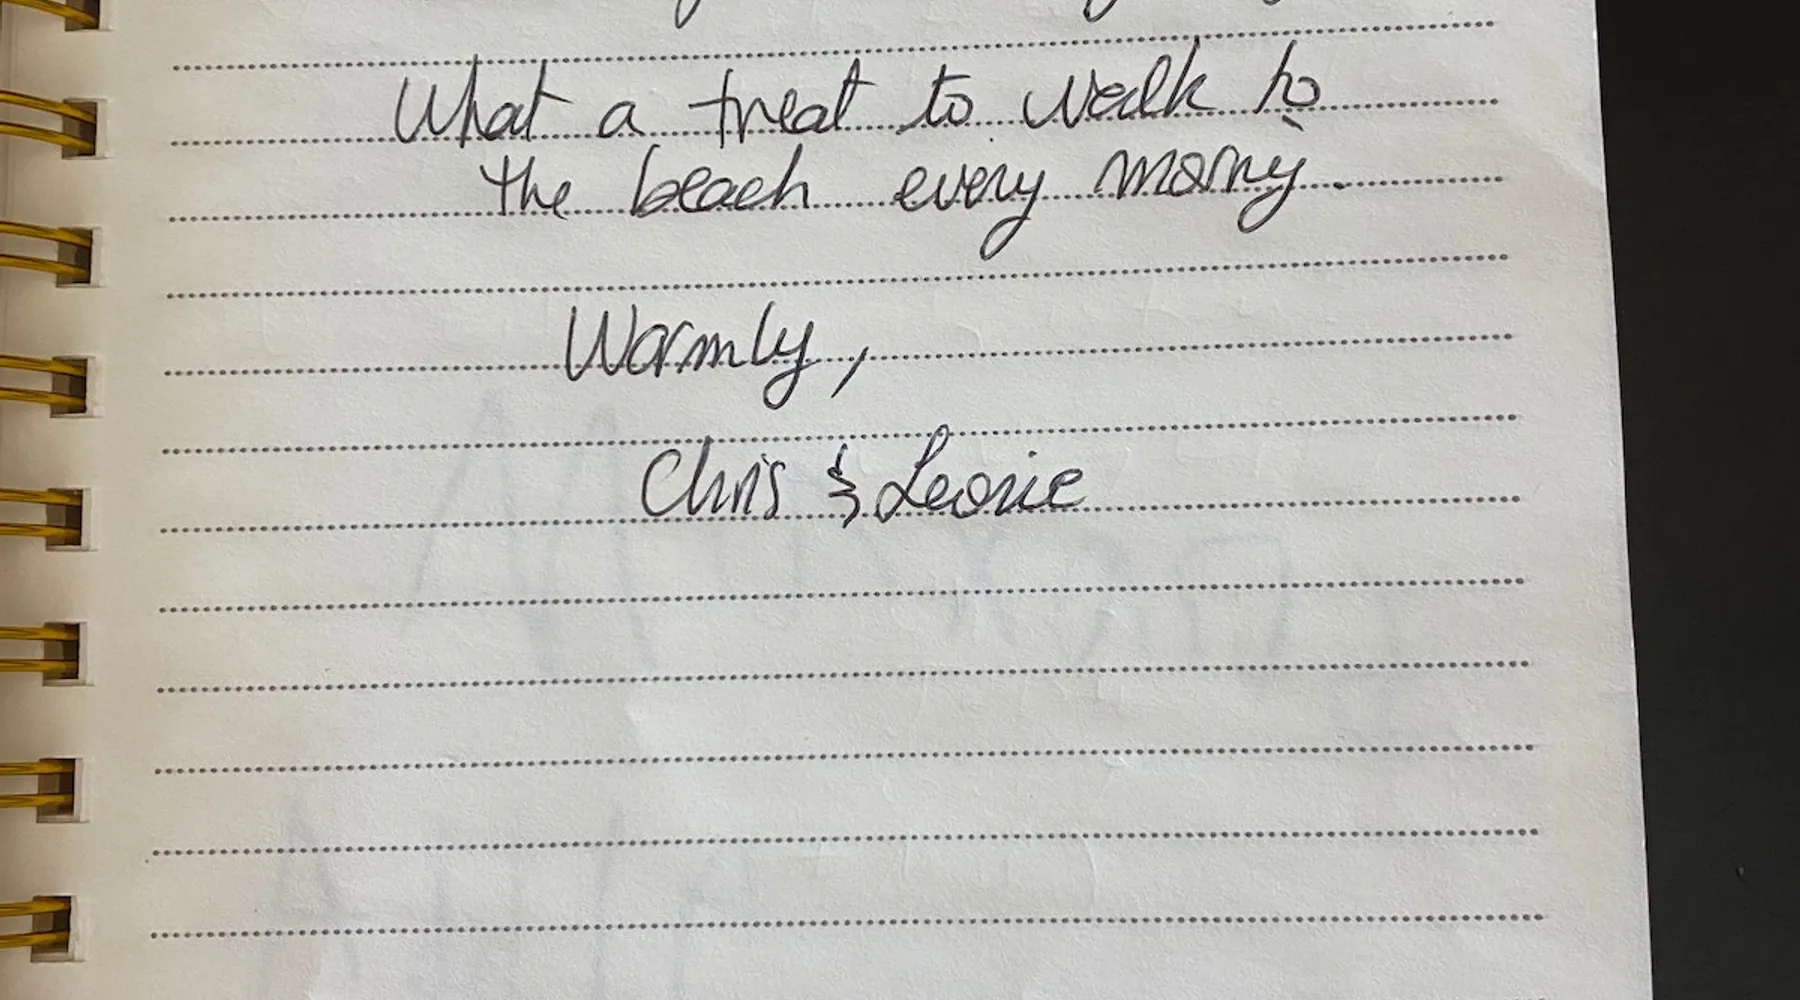 What a treat to walk to
the beach every morning.
Warmly,
Chris & Leonie